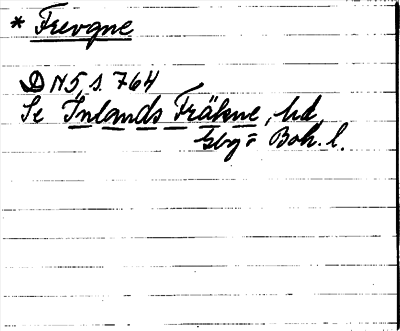 * Frevgne
DN5, s. 764
Se Inlands Fräkne, hd,
Gbg o Boh. l.